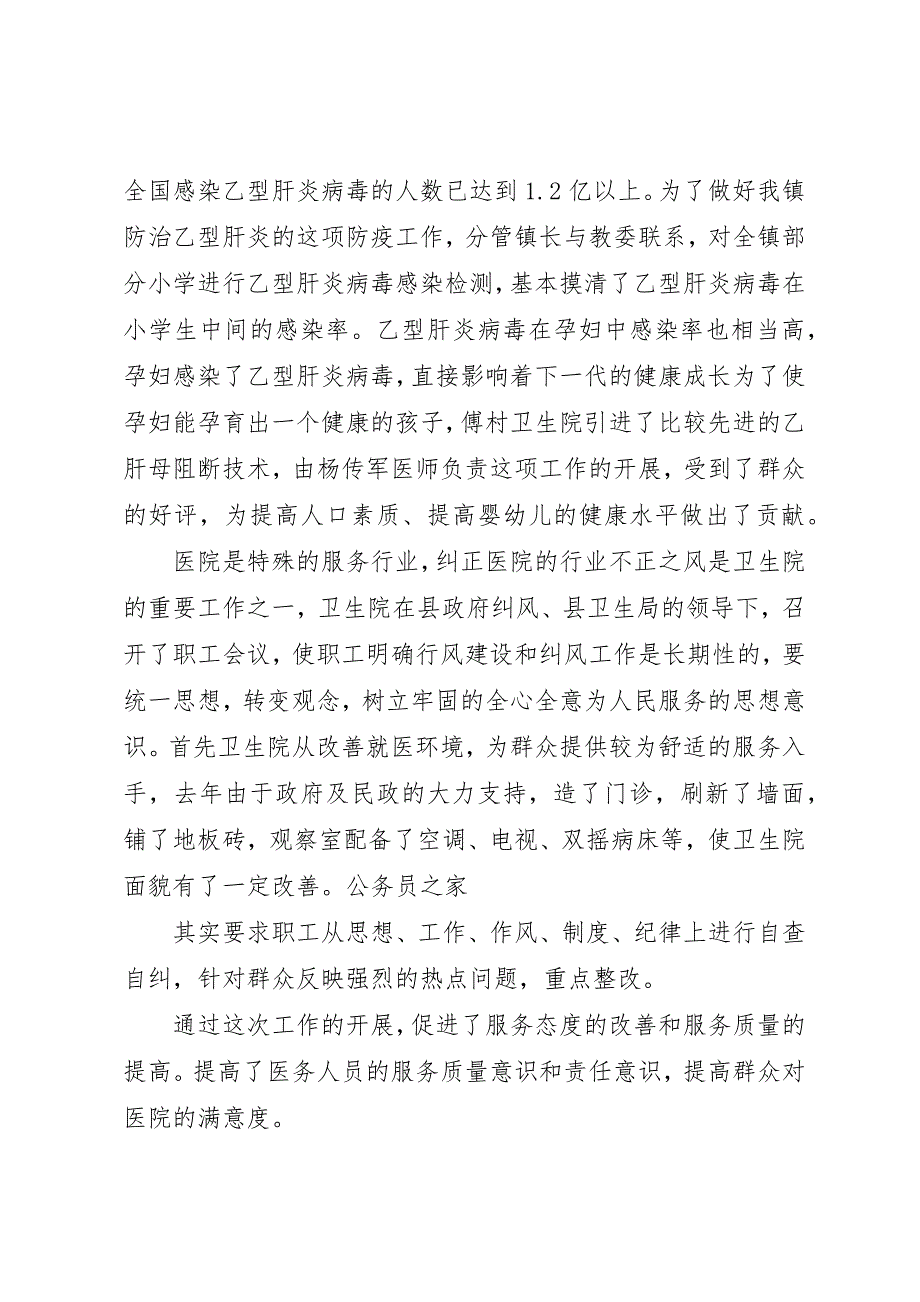 全国感染乙型肝炎病毒的人数已达到1.2亿以上。为了做好我镇
防治乙型肝炎的这项防疫工作，分管镇长与教委联系，对全镇部
分小学进行乙型肝炎病毒感染检测，基本摸清了乙型肝炎病毒在
小学生中间的感染率。乙型肝炎病毒在孕妇中感染率也相当高，
孕妇感染了乙型肝炎病毒，直接影响着下一代的健康成长为了使
孕妇能孕育出一个健康的孩子，傅村卫生院引进了比较先进的乙
肝母阻断技术，由杨传军医师负责这项工作的开展，受到了群众
的好评，为提高人口素质、提高婴幼儿的健康水平做出了贡献。
医院是特殊的服务行业，纠正医院的行业不正之风是卫生院
的重要工作之一，卫生院在县政府纠风、县卫生局的领导下，召
开了职工会议，使职工明确行风建设和纠风工作是长期性的，要
统一思想，转变观念，树立牢固的全心全意为人民服务的思想意
识。首先卫生院从改善就医环境，为群众提供较为舒适的服务入
手，去年由于政府及民政的大力支持，造了门诊，刷新了墙面，
铺了地板砖，观察室配备了空调、电视、双摇病床等，使卫生院
面貌有了一定改善。公务员之家
其实要求职工从思想、工作、作风、制度、纪律上进行自查
自纠，针对群众反映强烈的热点问题，重点整改。
通过这次工作的开展，促进了服务态度的改善和服务质量的
提高。提高了医务人员的服务质量意识和责任意识，提高群众对
医院的满意度。